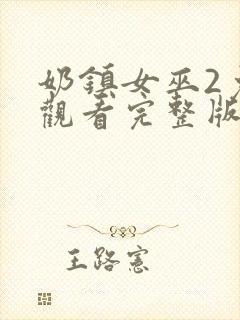 奶鎮女巫2
觀看完整版
王路憲